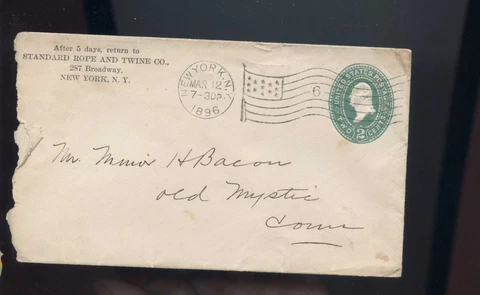 After 5 days, return to
STANDARD ROPE AND TWINE CO.,
287 Broadway,
NEW YORK, N. Y.
NEW YORK, N.Y.
MAR 12
7-30P
1896
6
UNITED STATES POSTAGE
TWO 2 CENTS
Mr. Minor H Bacon
Old Mystic
Conn